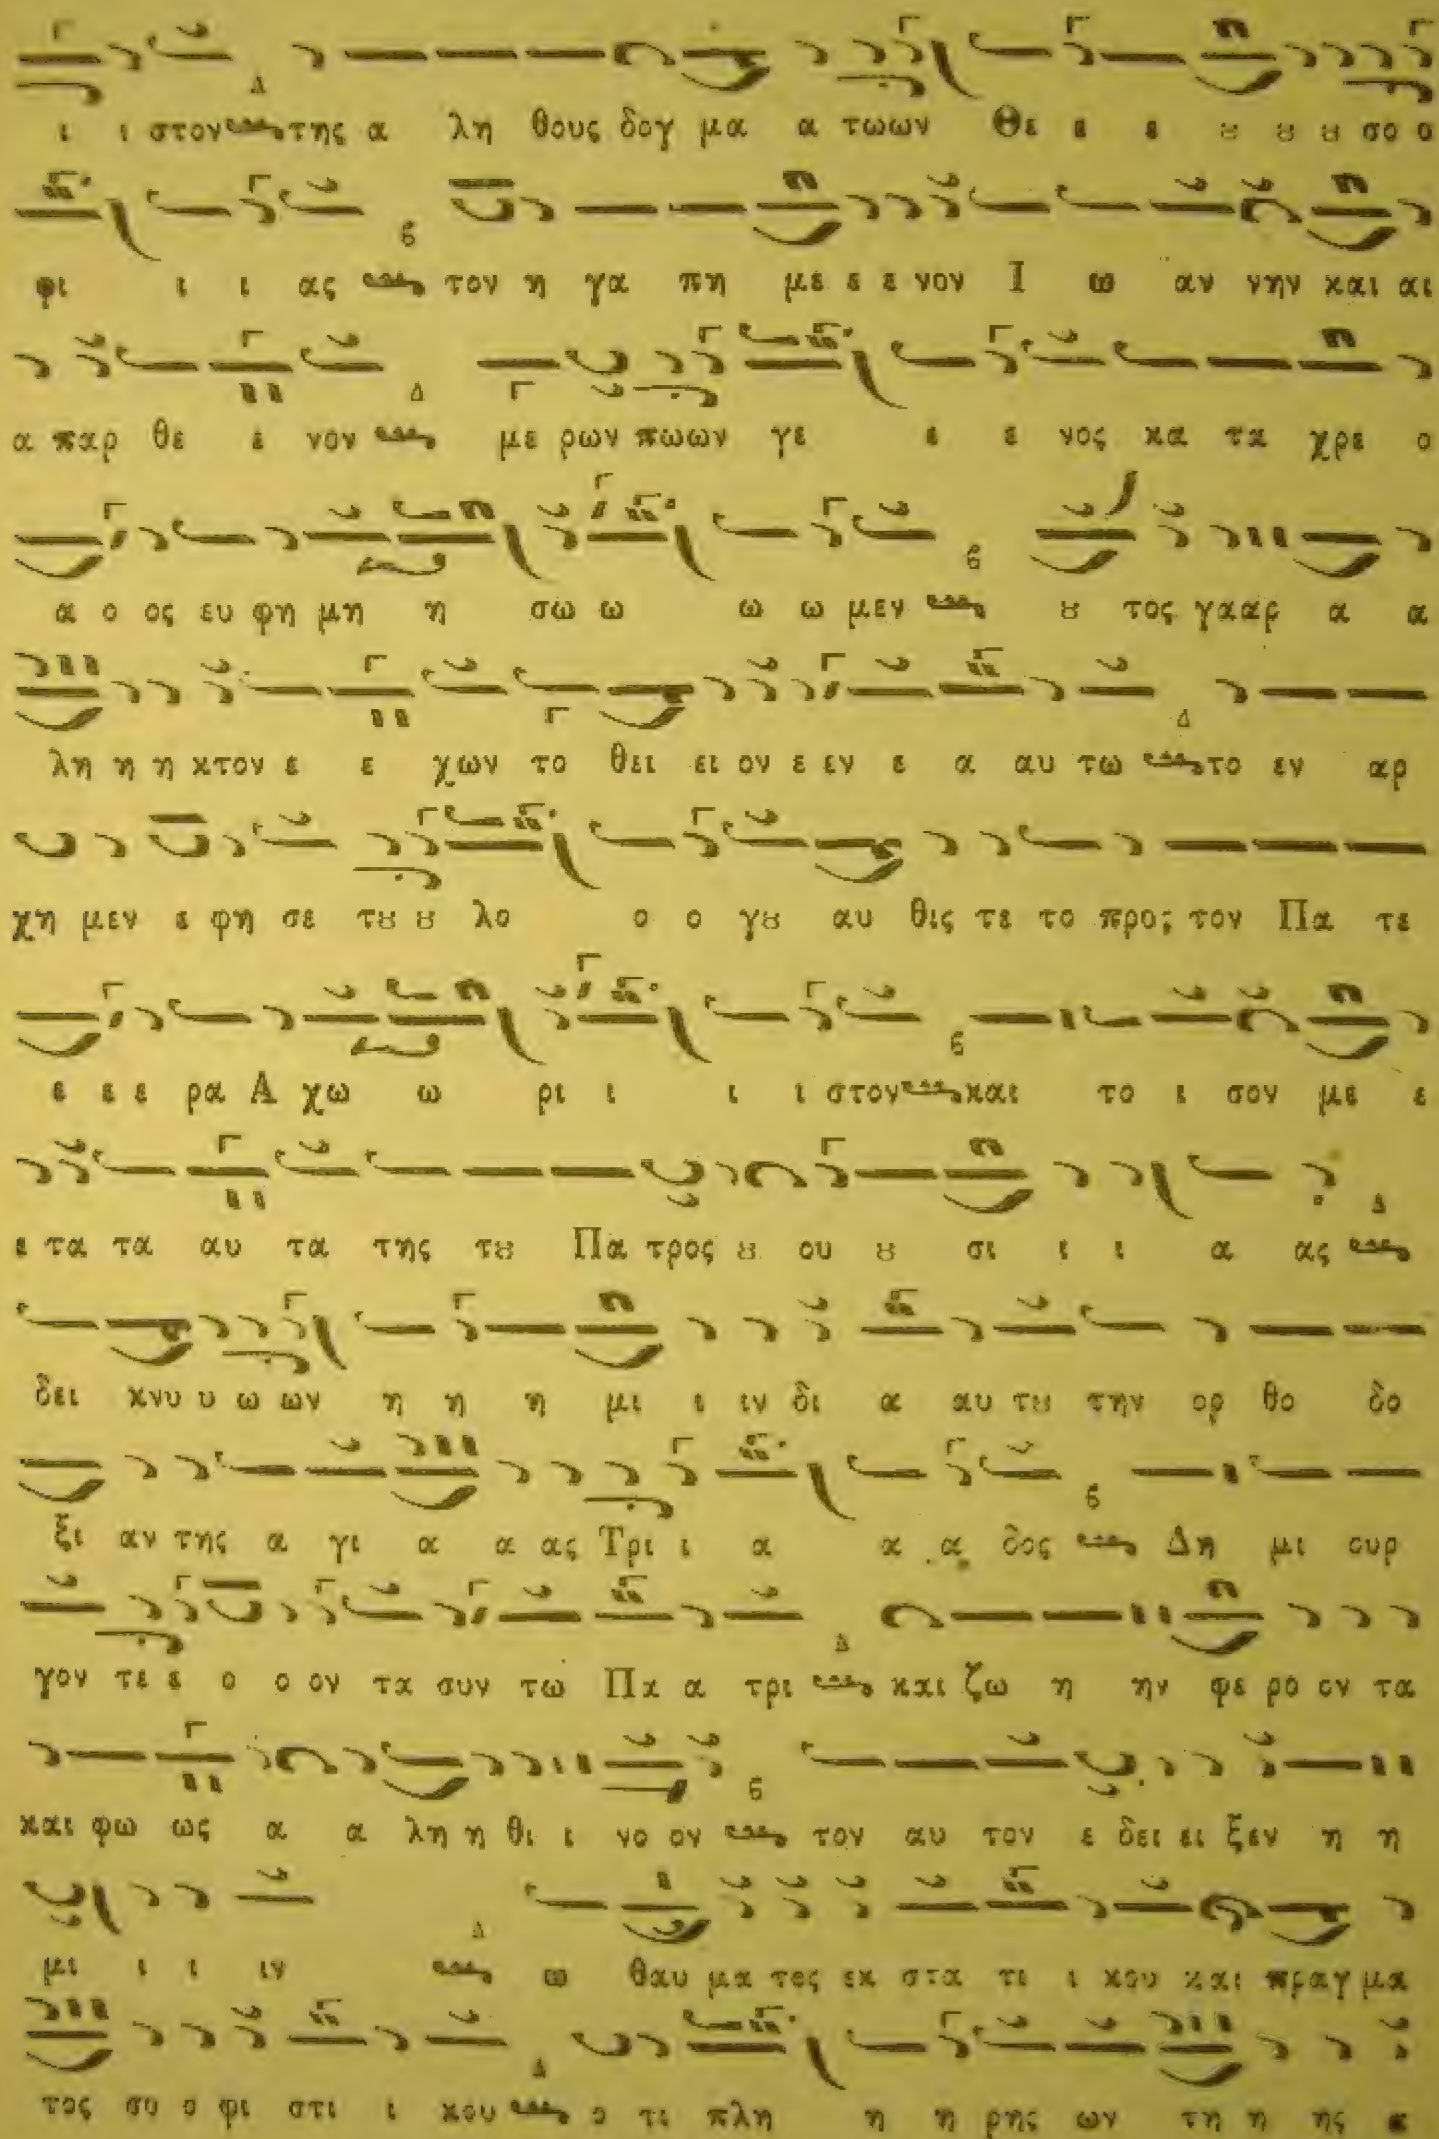 ι ι στον της α λη θους δογ μα α τωων Θε ε ε ȣ ȣ ȣ σο ο
φι ι ι ας τον η γα πη με ε ε νον Ι ω αν νην και αι
α παρ θε ε νον με ρων πωων γε ε ε νος κα τα χρε ο
α ο ος ευ φη μη η σω ω ω ω μεν ȣ τος γααρ α α
λη η η κτον ε ε χων το θει ει ον ε εν ε α αυ τω το εν αρ
χη μεν ε φη σε τȣ ȣ λο ο ο γȣ αυ θις τε το προς τον Πα τε
ε ε ε ρα Α χω ω ρι ι ι ι στον και το ι σον με ε
ε τα τα αυ τα της τȣ Πα τρος ȣ ου ȣ σι ι ι α ας
δει κνυ υ ω ων η η η μι ι ιν δι α αυ τȣ την ορ θο δο
ξι αν της α γι α α ας Τρι ι α α α δος Δη μι ουρ
γον τε ε ο ο ον τα συν τω Πα α τρι και ζω η ην φε ρο ον τα
και φω ως α α λη η θι ι νο ον τον αυ τον ε δει ει ξεν η η
μι ι ι ιν ω θαυ μα τος εκ στα τι ι κου και πραγ μα
τος σο ο φι στι ι κου ο τι πλη η η ρης ων τη η ης α